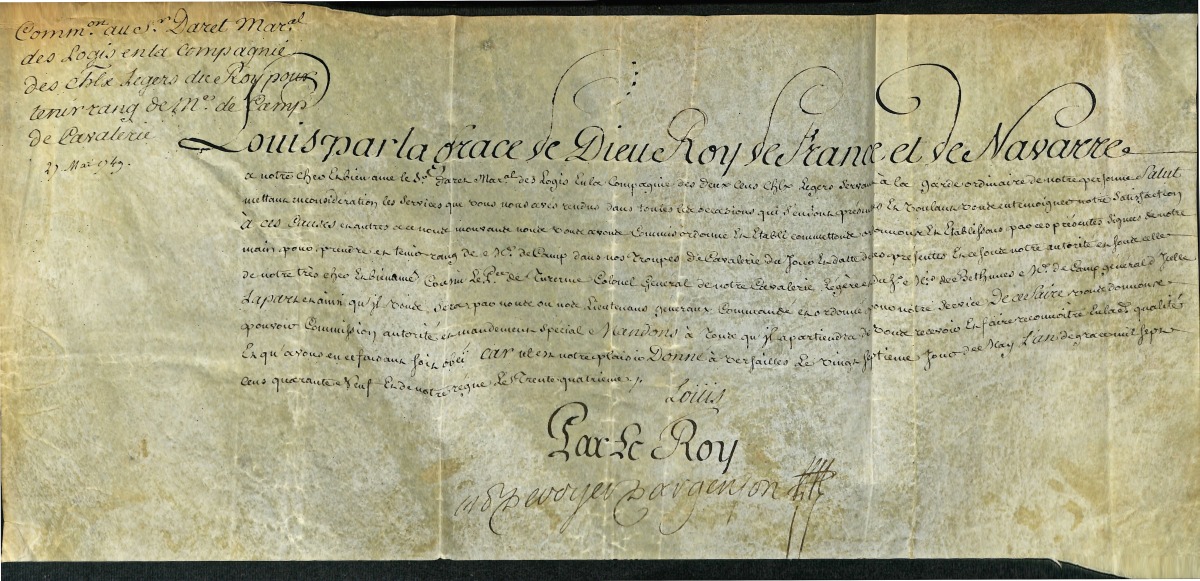 Comm.on au S.r Daret Mar.al
des Logis en la Compagnie
des Chlx Legers du Roy pour
tenir rang de M.e de Camp
de Cavalerie
27 May 1749.
Louis par la grace de Dieu Roy de France et de Navarre
a notre cher Et bien ame le S.r Daret Mar.al des Logis En la Compagnie des deux Cens Chlx Legers Servant à la garde ordinaire de notre personne Salut
mettant en consideration les Services que vous nous avés rendus dans toutes les occasions qui s'en sont présentées Et voulant vous en temoigner notre Satisfaction
A ces Causes et autres a ce nous mouvant nous vous avons Commis ordonné Et Etabli commettons ordonnons Et Etablissons par ces présentes signées de notre
main, pour prendre et tenir rang de M.e de Camp dans nos Troupes de Cavalerie du Jour Et datte des présentes Et ce sous notre autorité et sous celle
de notre très cher Et bien amé Cousin Le P.ce de Turenne Colonel General de notre Cavalerie Legère Et du S. M.is de Bethune M.e de Camp general d'Icelle
La part et ainsi qu'il vous sera par nous ou nos Lieutenans generaux Commandé et ordonné pour notre Service De ce Faire vous donnons
pouvoir Commission autorité et mandement special Mandons à Tous qu'il apartiendra de vous recevoir Et faire reconnoitre En lad. qualité
Et qu'a vous en ce faisant soit obéi Car tel est notre plaisir Donné à Versailles Le vingt septieme Jour de May L'an de grace mil sept
Cens quarante Neuf Et de notre règne Le Trente quatrième ./.
Louis
Par Le Roy
M De voyer D'argenson